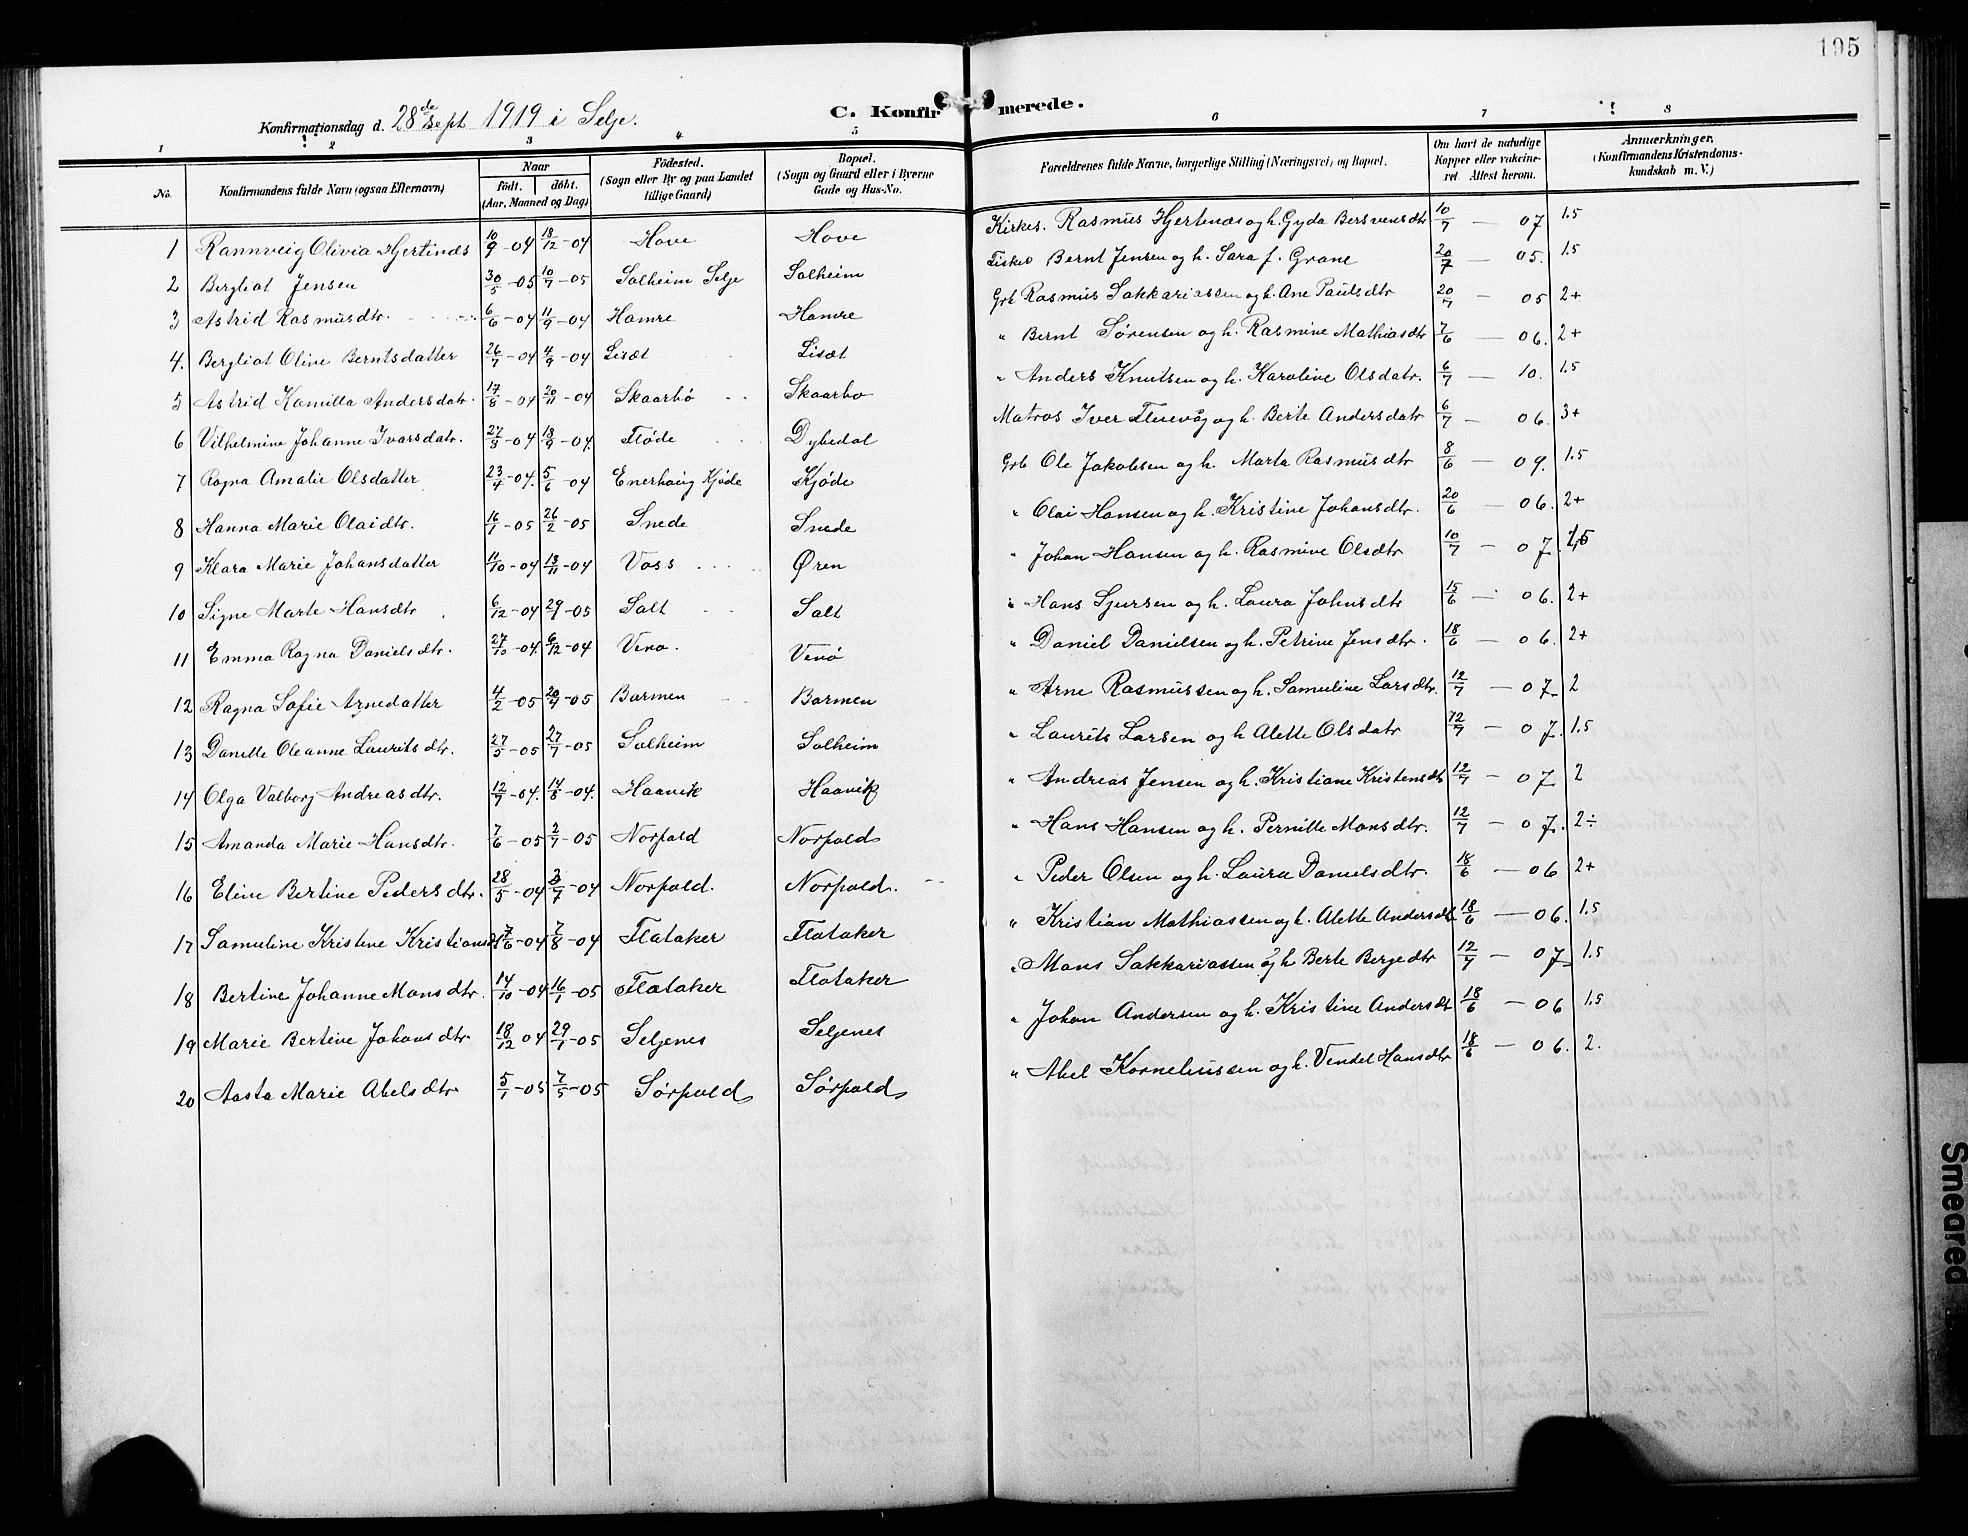 195
Konfirmationsdag d. 28de Sept 1919 i Selje. C. Konfirmerede.
1 2 3 4 5 6 7 8
No. Konfirmandens fulde Navn (ogsaa Efternavn) Naar født. døbt. (Aar, Maaned og Dag) Fødested. (Sogn eller By og paa Landet tillige Gaard) Bopæl. (Sogn og Gaard eller i Byerne Gade og Hus-No. Forældrenes fulde Navne, borgerlige Stilling (Næringsvei) og Bopæl. Om havt de naturlige Kopper eller vakcineret Attest herom. Anmærkninger. (Konfirmandens Kristendomskundskab m. V.)
1 Rannveig Olivia Hjertinæs 10/9-04 18/12-04 Hove Hove Kirkes. Rasmus Hjertenæs og h. Gyda Bersvensdtr 10/7 - 07 1.5
2 Bergliot Jensen 30/5-05 10/7-05 Salheim Selje Salheim Fisker Bernt Jensen og h. Sara f. Grane 20/7 - 05. 1.5
3 Astrid Rasmusdtr. 6/6-04 11/9-04 Hamre Hamre Grb Rasmus Sakkariassen og h. Ane Paulsdtr 20/7 - 05 2+
4. Bergliot Oline Berntsdatter 26/7-04 4/9-04 Lisæt Lisæt " Bernt Sørensen og h. Rasmine Mathiasdtr 7/6 - 06. 2+
5 Astrid Kamilla Andersdatr. 17/8-04 20/11-04 Skaarbø Skaarbø " Anders Knutsen og h. Karoline Olsdatr. 6/7 - 10. 1.5
6 Vilhelmine Johanne Ivarsdatr. 27/5-04 18/9-04. Fløde Dybedal Matros Iver Fluevåg og h. Berte Andersdatr 6/7 - 06. 3+
7 Ragna Amalie Olsdatter 23/4-04. 5/6-04 Enerhaug Kjøde Kjøde Grb Ole Jakobsen og h. Marta Rasmusdtr 8/6 - 09. 1.5
8 Hanna Marie Olaidtr. 16/1-05 26/2-05 Snede Snede " Olai Hansen og h. Kristine Johansdtr. 20/6 - 06. 2+
9 Klara Marie Johansdatter 11/10-04 13/11-04 Voss Øren " Johan Hansen og h. Rasmine Olsdtr 10/7 - 07. 1,5
10 Signe Marte Hansdtr 6/12-04 29/1-05 Salt Salt " Hans Sjursen og h. Laura Johnsdtr 15/6 - 06. 2+
11 Emma Ragna Danielsdtr. 27/10-04. 6/12-04 Venø. Venø " Daniel Danielsen og h. Petrine Jensdtr. 18/6 - 06. 2+
12 Ragna Sofie Arnedatter 4/2-05 20/4-05 Barmen Barmen " Arne Rasmussen og h. Samuline Larsdtr. 12/7 - 07- 2
13 Danelle Oleanne Lauritsdtr. 27/5-05 27/7-05 Salheim Salheim " Laurits Larsen og h Alette Olsdatr 12/7 - 07. 1.5
14 Olga Valborg Andreasdtr. 12/7-04. 14/8-04. Haavik Haavik " Andreas Jensen og h. Kristiane Kristensdtr 12/7 - 07 2
15 Amanda Marie Hansdtr. 7/6-05 2/7-05 Norpold Norpold " Hans Hansen og h. Pernille Monsdtr. 12/7 - 07. 2÷
16 Eline Bertine Pedersdtr. 28/5-04 3/7-04 Norpold. Norpold. " Peder Olsen og h. Laura Danielsdtr. 18/6 - 06 2+
17 Samuline Kristine Kristiansdt 7/6-04 7/8-04 Flataker Flataker " Kristian Mathiassen og h. Alette Andersdt 18/6 - 06. 1.5
18 Bertine Johanne Monsdtr. 14/10-04 16/1-05 Flataker Flataker " Mons Sakkariassen og h Berte Bergedtr 12/7 - 07 1.5
19 Marie Bertine Johansdtr. 18/12 04 29/1-05 Seljenes Seljenes " Johan Andersen og h. Kristine Andersdt 18/6 - 06 1.5
20 Aasta Marie Abelsdtr 5/1-05 7/5-05 Sørpold Sørpold " Abel Korneliussen og h. Vendel Hansdtr 18/6 - 06. 2.
Smeared